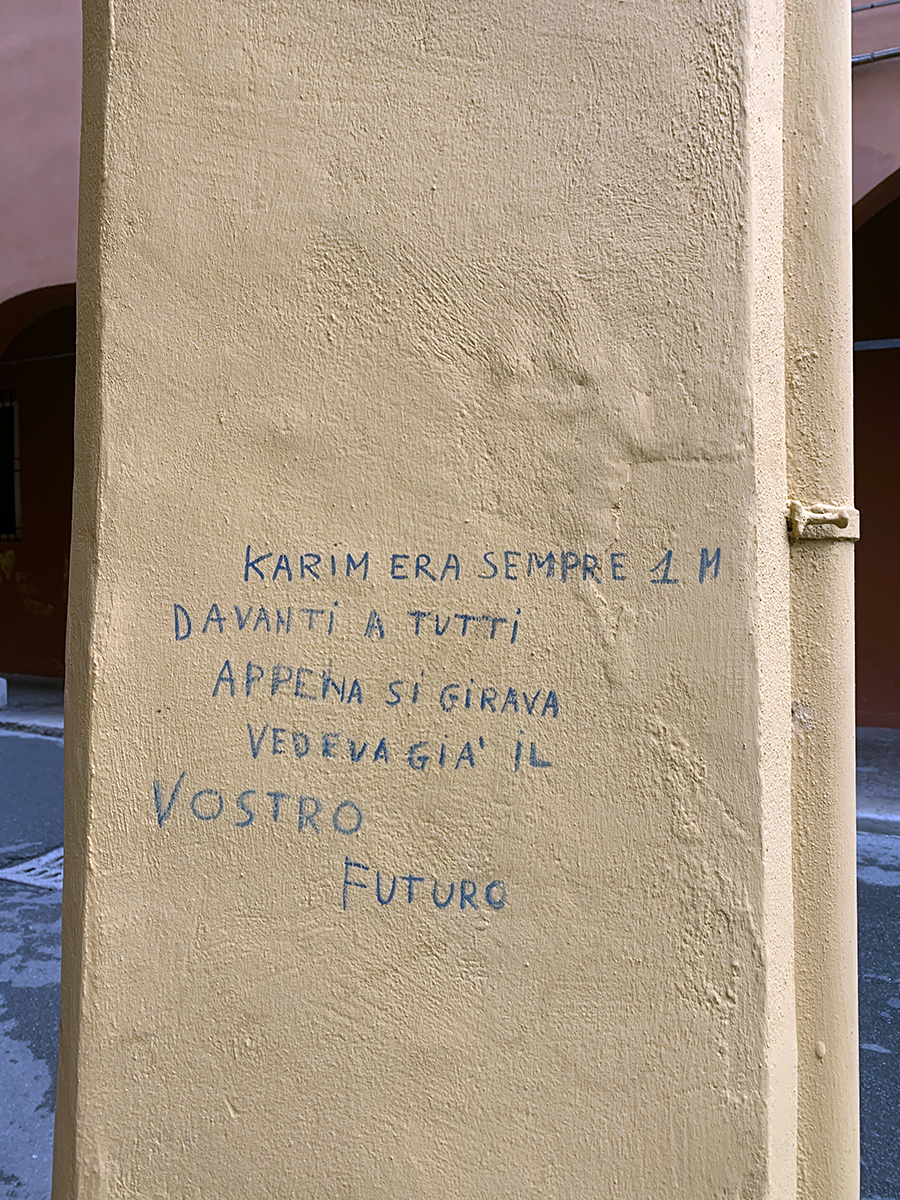 KARIM ERA SEMPRE 1 M
DAVANTI A TUTTI
APPENA SI GIRAVA
VEDEVA GIA' IL
VOSTRO
FUTURO